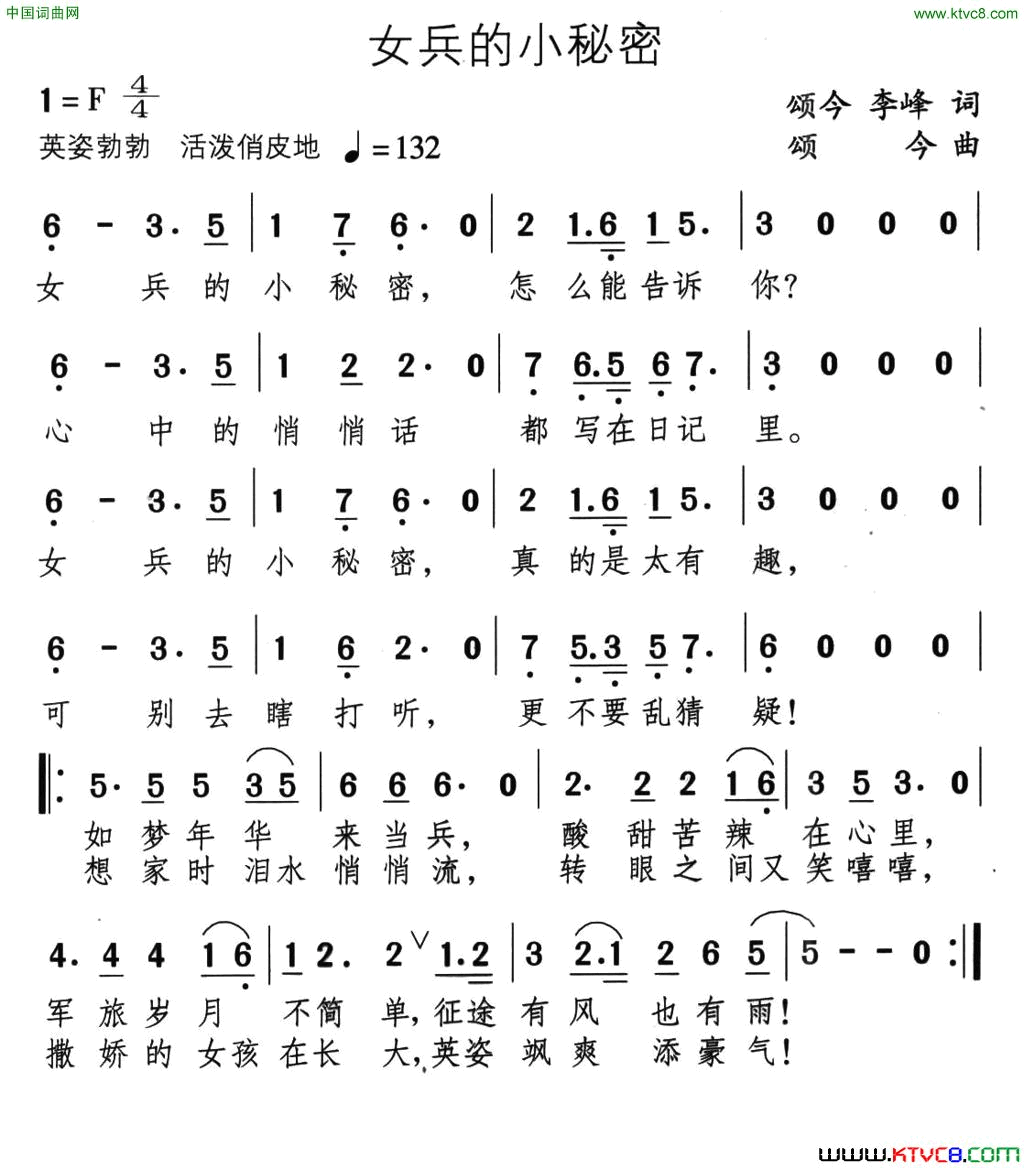 中国词曲网 www.ktvc8.com
女兵的小秘密
1=F 4/4 颂今 李峰 词
英姿勃勃 活泼俏皮地 ♩=132 颂 今 曲
6 - 3. 5 | 1 7 6. 0 | 2 1.6 1 5. | 3 0 0 0 |
女 兵的小秘密, 怎么能告诉 你?
6 - 3. 5 | 1 2 2. 0 | 7 6.5 6 7. | 3 0 0 0 |
心 中的悄悄话 都写在日记 里。
6 - 3. 5 | 1 7 6. 0 | 2 1.6 1 5. | 3 0 0 0 |
女 兵的小秘密, 真的是太有 趣,
6 - 3. 5 | 1 6 2. 0 | 7 5.3 5 7. | 6 0 0 0 |
可 别去瞎打听, 更不要乱猜 疑!
‖: 5. 5 5 3 5 | 6 6 6. 0 | 2. 2 2 1 6 | 3 5 3. 0 |
如梦年华 来当兵, 酸甜苦辣 在心里,
想家时泪水悄悄流, 转眼之间又笑嘻嘻,
4. 4 4 1 6 | 1 2. 2 ∨ 1.2 | 3 2.1 2 6 5 | 5 - - 0 :‖
军旅岁月 不简单,征途有风 也有雨!
撒娇的女孩在长 大,英姿飒爽 添豪气!
www.KTVC8.com